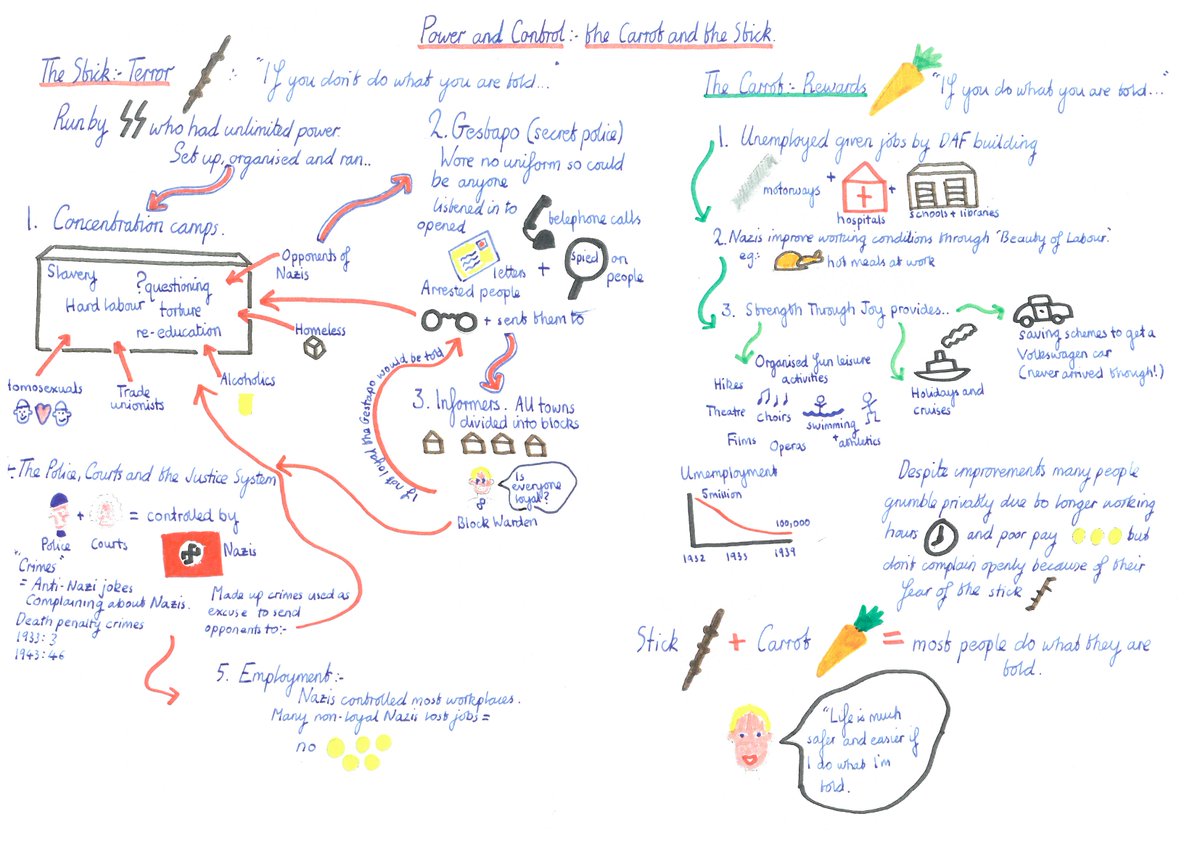 Power and Control:- the Carrot and the Stick.
The Stick:- Terror
: "If you don't do what you are told..."
Run by SS who had unlimited power.
Set up, organised and ran..
1. Concentration camps.
Slavery
? questioning
Hard labour
torture
re-education
Opponents of
Nazis
Homeless
Alcoholics
Trade
unionists
Homosexuals
2. Gestapo (secret police)
Wore no uniform so could
be anyone
listened in to
telephone calls
opened
letters + spied on
people
Arrested people
+ sent them to
If not loyal the Gestapo would be told
3. Informers. All towns
divided into blocks
Is
everyone
loyal?
Block Warden
:- The Police, Courts and the Justice System
+ = controlled by
Police Courts
Nazis
"Crimes"
= Anti-Nazi jokes
Complaining about Nazis.
Death penalty crimes
1933: 3
1943: 46
Made up crimes used as
excuse to send
opponents to:-
5. Employment:-
Nazis controlled most workplaces.
Many non-loyal Nazis lost jobs =
no
The Carrot:- Rewards
"If you do what you are told..."
1. Unemployed given jobs by DAF building
motorways + hospitals + schools + libraries
2. Nazis improve working conditions through "Beauty of Labour".
eg: hot meals at work
3. Strength Through Joy provides..
Organised fun leisure
activities
Hikes
Theatre
choirs
swimming
+ athletics
Films
Operas
Holidays and
cruises
saving schemes to get a
Volkswagen car
(never arrived though!)
Unemployment
5 million
100,000
1932 1935 1939
Despite improvements many people
grumble privatly due to longer working
hours and poor pay but
don't complain openly because of their
fear of the stick
Stick + Carrot = most people do what they are
told.
"Life is much
safer and easier if
I do what I'm
told.